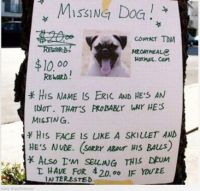 MISSING DOG!
$20.00
REWARD!
$10.00
REWARD!
CONTACT TOM
MEOATMEAL@
HOTMAIL.COM
* HIS NAME IS ERIC AND HE'S AN
IDIOT. THAT'S PROBABLY WHY HE'S
MISSING.
* HIS FACE IS LIKE A SKILLET AND
HE'S NUDE. (SORRY ABOUT HIS BALLS)
* ALSO I'M SELLING THIS DRUM
I HAVE FOR $20.00 IF YOU'RE
INTERESTED